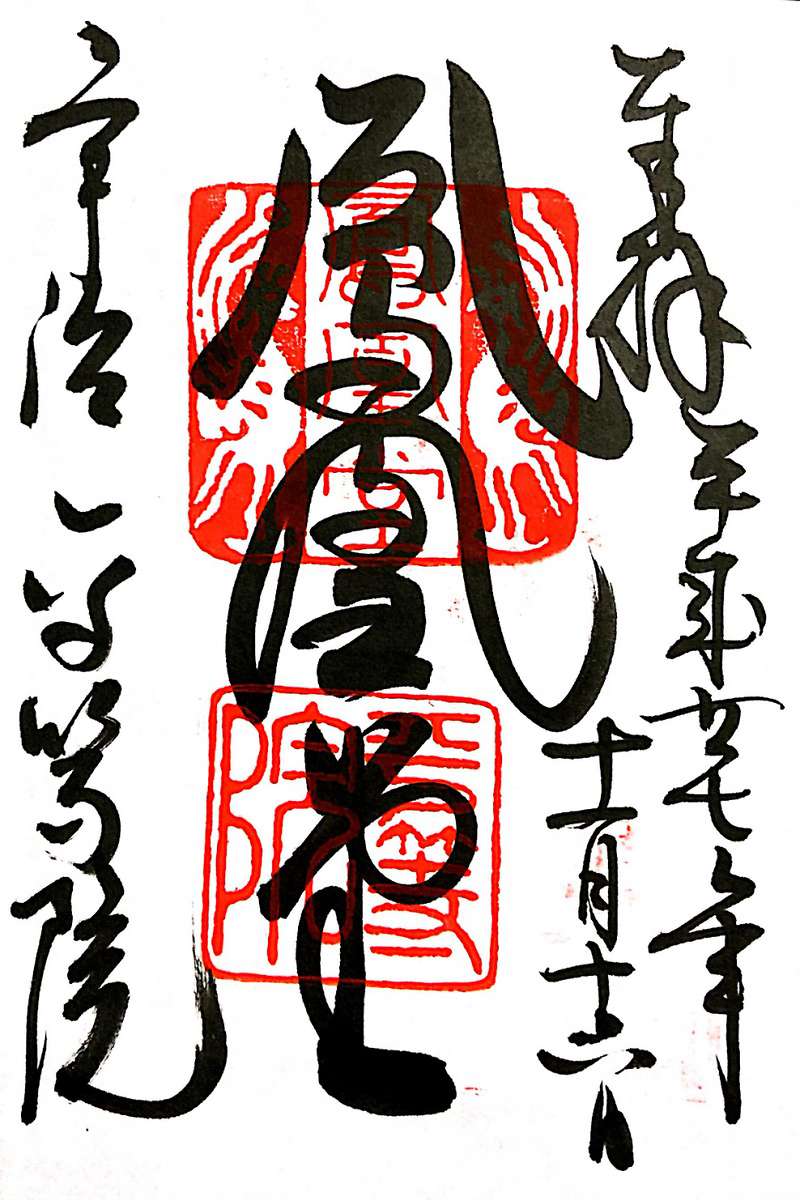 奉拝 平成廿七年
十一月十六日
鳳凰堂
宇治 平等院
鳳凰堂
平等院